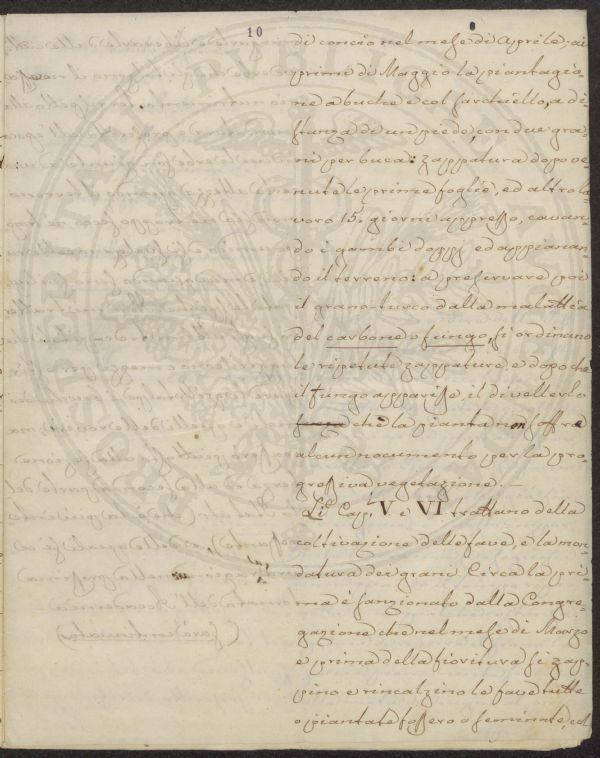 10
di concio nel mese di Aprile; ai
primi di Maggio la piantagio
ne a buche e col sarchiello, a di-
stanza di un piede, con due gra
ni per buca: zappatura dopo ve
nute le prime foglie, ed altro la-
voro 15. giorni appresso, cavan
do i gambi doppj ed appianan
do il terreno: a preservare poi
il grano-turco dalla malattia
del carbone o fungo, si ordinano
le ripetute zappature, e dopo che
il fungo apparisse, il divellerlo
che la pianta non soffra
alcun nocumento per la pro
gressiva vegetazione. –
Li Cap.i V e VI trattano della
coltivazione delle fave, e la mon
datura dei grani. Circa la pri
ma è sanzionato dalla Congre
gazione che nel mese di Marzo
e prima della fioritura si zap
pino e rincalzino le fave tutte
o piantate fossero o seminate, col